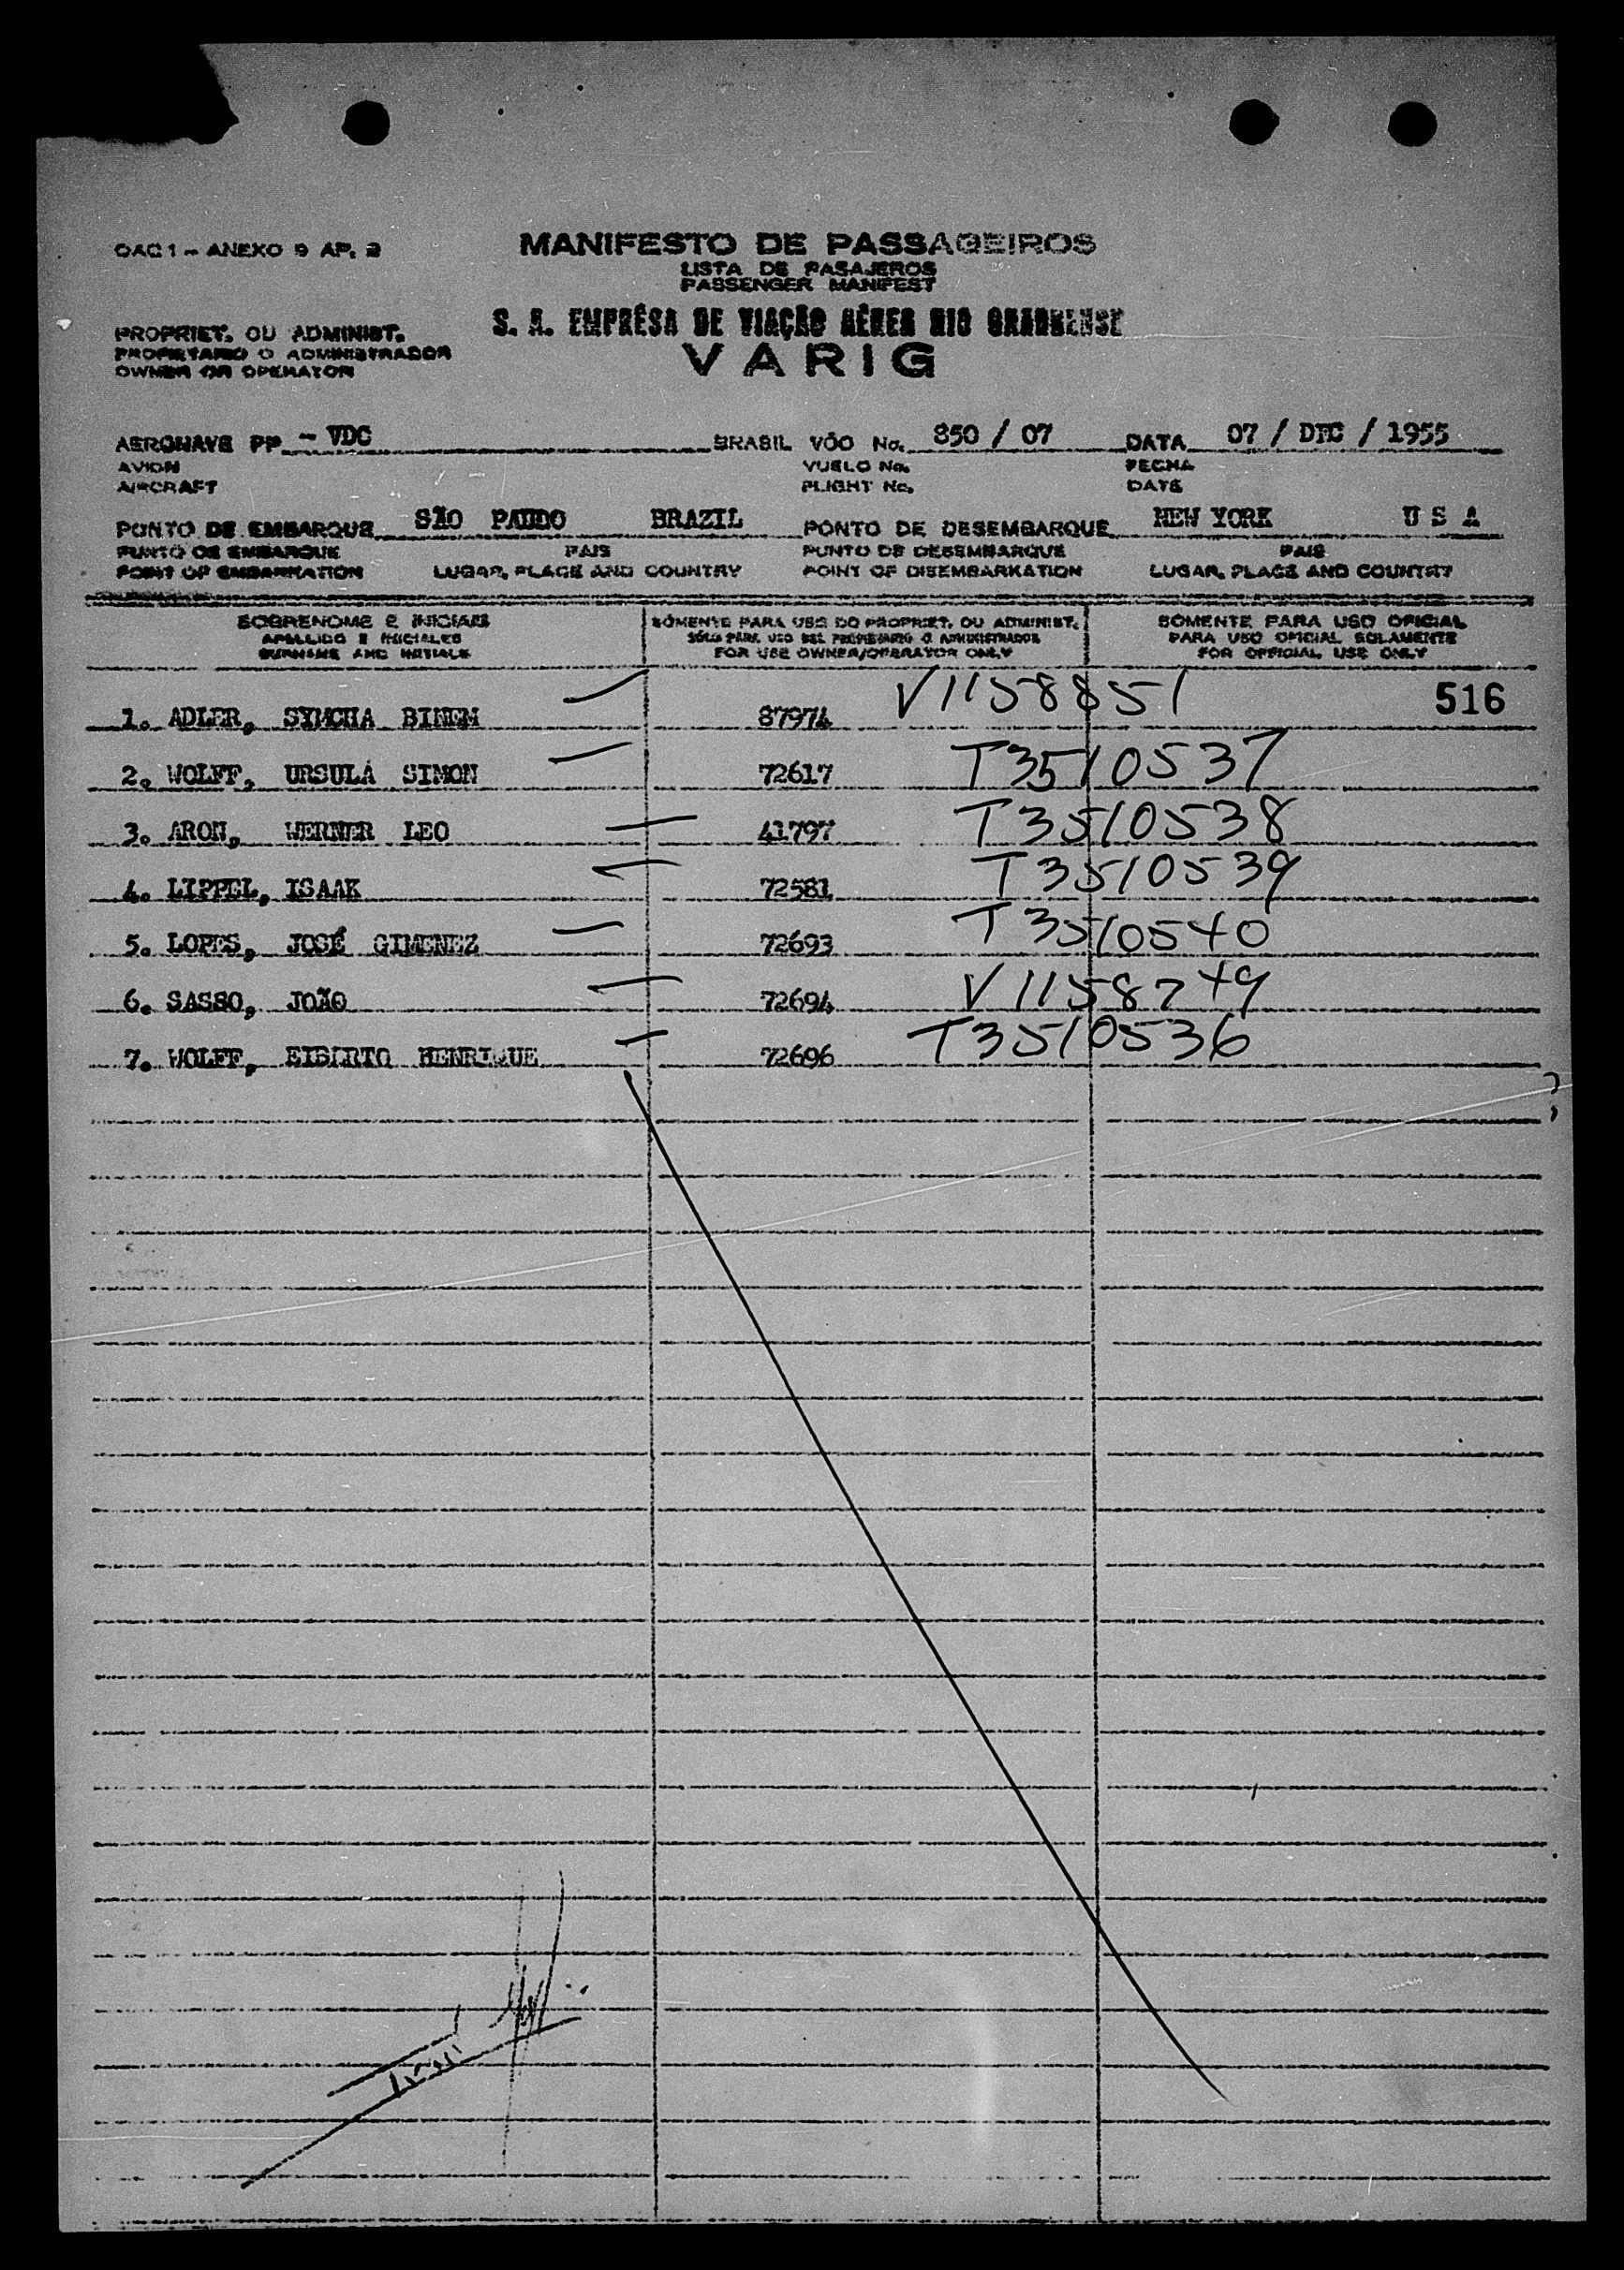 OAC 1 - ANEXO 9 AP. 2
MANIFESTO DE PASSAGEIROS
LISTA DE PASAJEROS
PASSENGER MANIFEST
PROPRIET. OU ADMINIST.
PROPIETARIO O ADMINISTRADOR
OWNER OR OPERATOR
S. A. EMPRÊSA DE VIAÇÃO AÉREA RIO GRANDENSE
VARIG
AERONAVE PP - VDC BRASIL VÔO No. 850 / 07 DATA 07 / DEC / 1955
AVION VUELO No. FECHA
AIRCRAFT FLIGHT No. DATE
PONTO DE EMBARQUE SÃO PAULO BRAZIL PONTO DE DESEMBARQUE NEW YORK U S A
PUNTO DE EMBARQUE PAIS PUNTO DE DESEMBARQUE PAIS
POINT OF EMBARKATION LUGAR, PLACE AND COUNTRY POINT OF DISEMBARKATION LUGAR, PLACE AND COUNTRY
SOBRENOME E INICIAIS SÒMENTE PARA USO DO PROPRIET. OU ADMINIST. SOMENTE PARA USO OFICIAL
APELLIDO E INICIALES SÓLO PARA USO DEL PROPIETARIO O ADMINISTRADOR PARA USO OFICIAL SOLAMENTE
SURNAME AND INITIALS FOR USE OWNER/OPERATOR ONLY FOR OFFICIAL USE ONLY
1. ADLER, SYMCHA BINEM 87974 V1158851 516
2. WOLFF, URSULA SIMON 72617 T3510537
3. ARON, WERNER LEO 41797 T3510538
4. LIPPEL, ISAAK 72581 T3510539
5. LOPES, JOSÉ GIMENEZ 72693 T3510540
6. SASSO, JOÃO 72694 V1158749
7. WOLFF, HENRIQUE 72696 T3510536